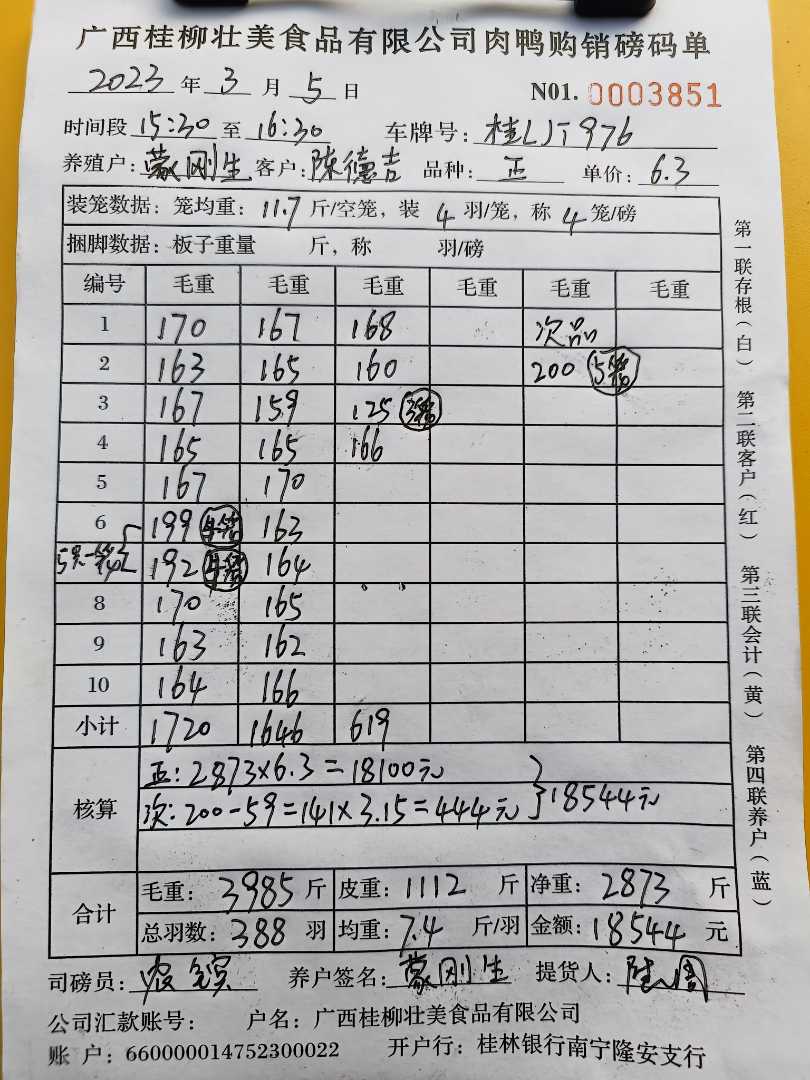 广西桂柳壮美食品有限公司肉鸭购销磅码单
2023 年 3 月 5 日 N01. 0003851
时间段 15:30 至 16:30 车牌号: 桂LJT976
养殖户: 蒙刚生 客户: 陈德吉 品种: 正 单价: 6.3
装笼数据: 笼均重: 11.7 斤/空笼, 装 4 羽/笼, 称 4 笼/磅
捆脚数据: 板子重量 斤, 称 羽/磅
编号 毛重 毛重 毛重 毛重 毛重 毛重
1 170 167 168 次品
2 163 165 160 200 5笼
3 167 159 125 3笼
4 165 165 166
5 167 170
6 199 4笼 163
5只一笼 192 4笼 164
8 170 165
9 163 162
10 164 166
小计 1720 1646 619
核算
正: 2873×6.3=18100元
次: 200-59=141×3.15=444元 }18544元
合计
毛重: 3985 斤 皮重: 1112 斤 净重: 2873 斤
总羽数: 388 羽 均重: 7.4 斤/羽 金额: 18544 元
司磅员: 养户签名: 蒙刚生 提货人:
公司汇款账号: 户名: 广西桂柳壮美食品有限公司
账 户: 660000014752300022 开户行: 桂林银行南宁隆安支行
第一联存根(白) 第二联客户(红) 第三联会计(黄) 第四联养户(蓝)